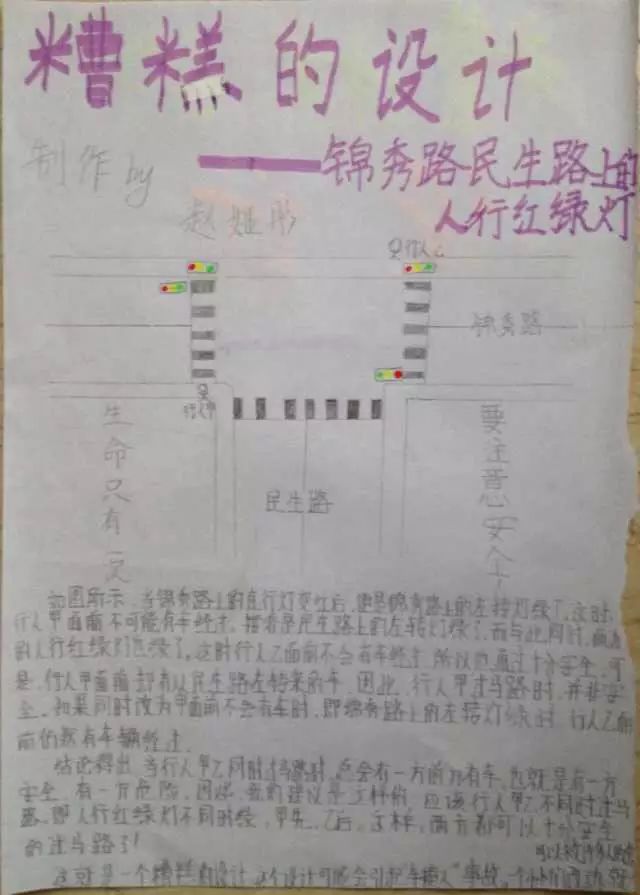 糟糕的设计
——锦秀路民生路上的
人行红绿灯
制作by
赵娅彤
行人乙
锦秀路
行人甲
民生路
生命只有一次
要注意安全!
如图所示,当锦秀路上的直行灯变红后,便是锦秀路上的左转灯绿了,这时,
行人甲面前不可能有车经过,接着是民生路上的左转灯绿了,而与此同时,两边
的人行红绿灯也绿了。这时行人乙面前不会有车经过,所以也通过十分安全,可
是,行人甲面前却有从民生路左转来的车,因此,行人甲过马路时,并非安
全。如果同时改为甲面前不会有车时,即锦秀路上的左转灯绿时,行人乙面
前仍然有车辆经过。
结论得出,当行人甲乙同时过马路时,总会有一方前方有车,也就是有一方
安全,有一方危险,因此,我的建议是这样的,应该行人甲乙不同时过马
路,即人行红绿灯不同时绿,甲先,乙后,这样,两方都可以十分安全
的过马路了!
这就是一个糟糕的设计,这个设计可能会引起"车撞人"事故,一个小小的改动
可以